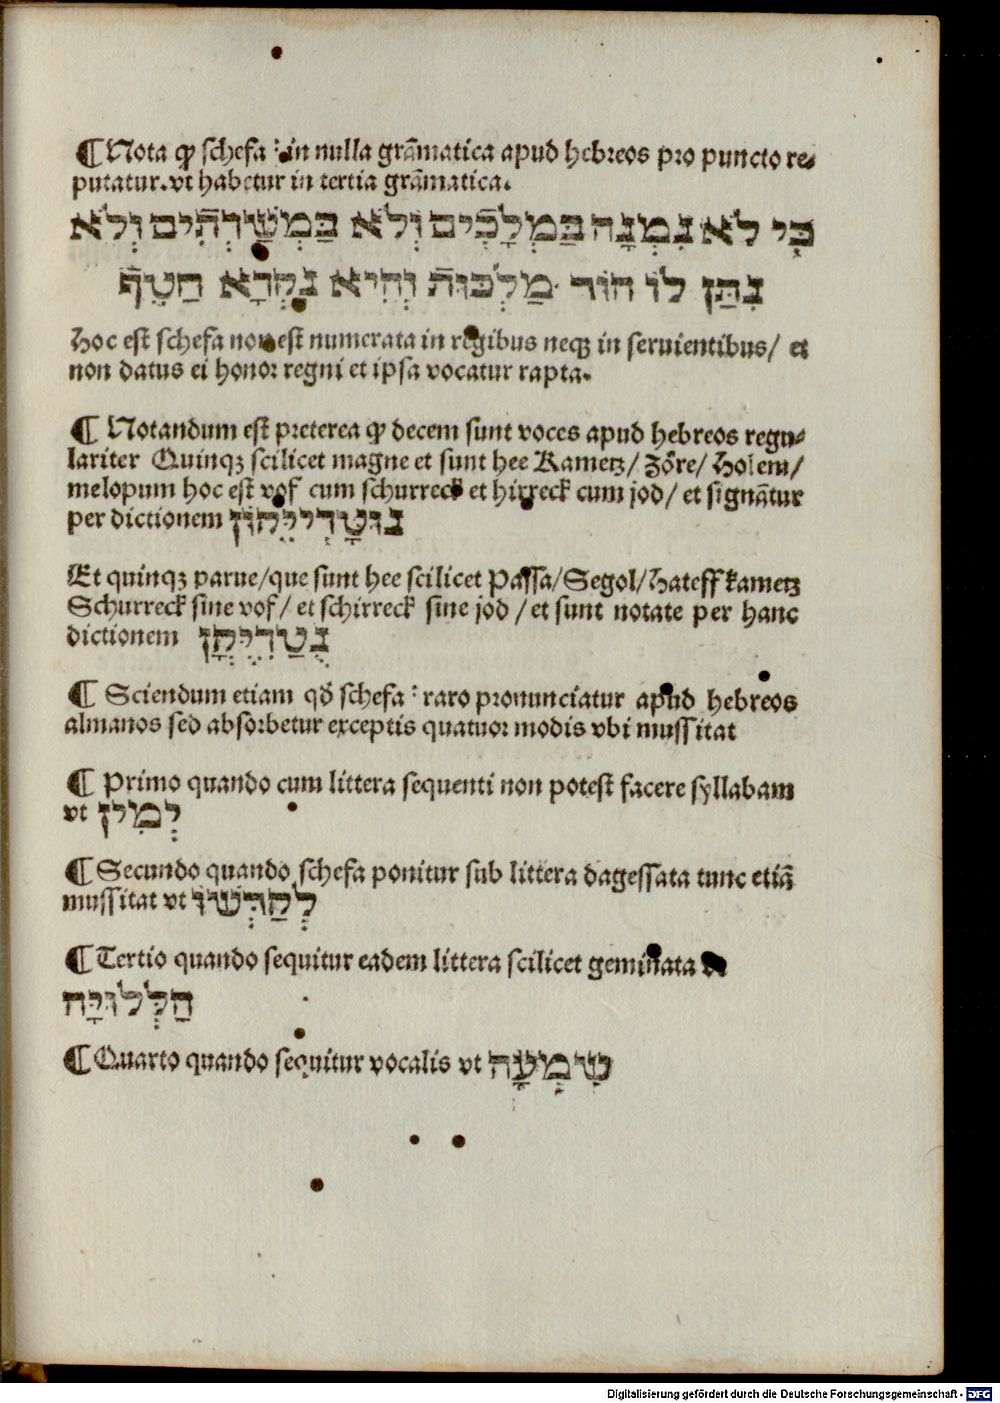 ¶ Nota ꝙ schefa ׃ in nulla grãmatica apud hebreos pro puncto re⸗
putatur. vt habetur in tertia grãmatica.
כִּי לֹא נִמְנָה בַּמְלָכִים וְלֹא בַּמְשָׁרְתִים וְלֹא
נִתַּן לוֹ הוֹד מַלְכוּת וְהִיא נִקְרָא חֲטָף
Hoc est schefa non est numerata in regibus neqꝫ in seruientibus/ et
non datus ei honor regni et ipsa vocatur rapta.
¶ Notandum est preterea ꝙ decem sunt voces apud hebreos regu⸗
lariter Quinqꝫ scilicet magne et sunt hee Kametz/ Zõre/ Holem/
melopum hoc est vof cum schurreck et hirreck cum jod/ et signãtur
per dictionem
Et quinqꝫ parue/que sunt hee scilicet Passa/Segol/Hateff kametz
Schurreck sine vof/ et schirreck sine jod /et sunt notate per hanc
dictionem
¶ Sciendum etiam qđ schefa ׃ raro pronunciatur apud hebreos
almanos sed absorbetur exceptis quatuor modis vbi mussitat
¶ Primo quando cum littera sequenti non potest facere syllabam
vt לְמִין
¶ Secundo quando schefa ponitur sub littera dagessata tunc etiã
mussitat vt לְקַדְּשׁוֹ
¶ Tertio quando sequitur eadem littera scilicet geminata
הַלְלוּיָּהּ
¶ Quarto quando sequitur vocalis vt שִׁמְעָה
Digitalisierung gefördert durch die Deutsche Forschungsgemeinschaft - DFG